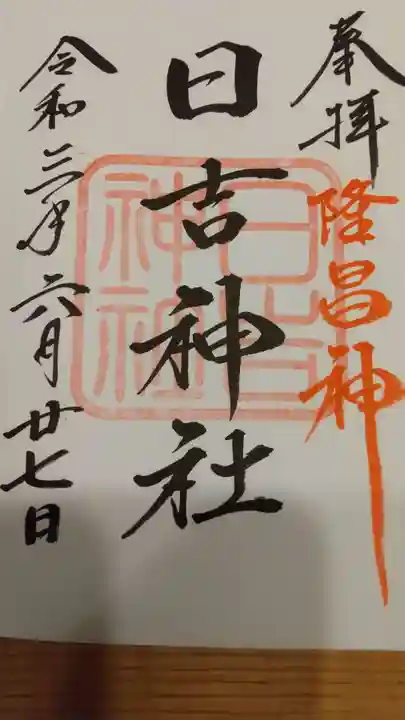 奉拝
隆昌神
日吉神社
日吉
神社
令和三年六月廿七日